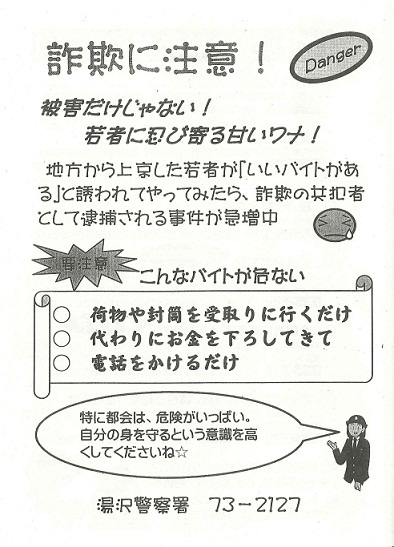 詐欺に注意！
Danger
被害だけじゃない！
若者に忍び寄る甘いワナ！
地方から上京した若者が「いいバイトがあ
る」と誘われてやってみたら、詐欺の共犯者
として逮捕される事件が急増中
要注意
こんなバイトが危ない
○ 荷物や封筒を受取りに行くだけ
○ 代わりにお金を下ろしてきて
○ 電話をかけるだけ
特に都会は、危険がいっぱい。
自分の身を守るという意識を高
くしてくださいね☆
湯沢警察署 73－2127